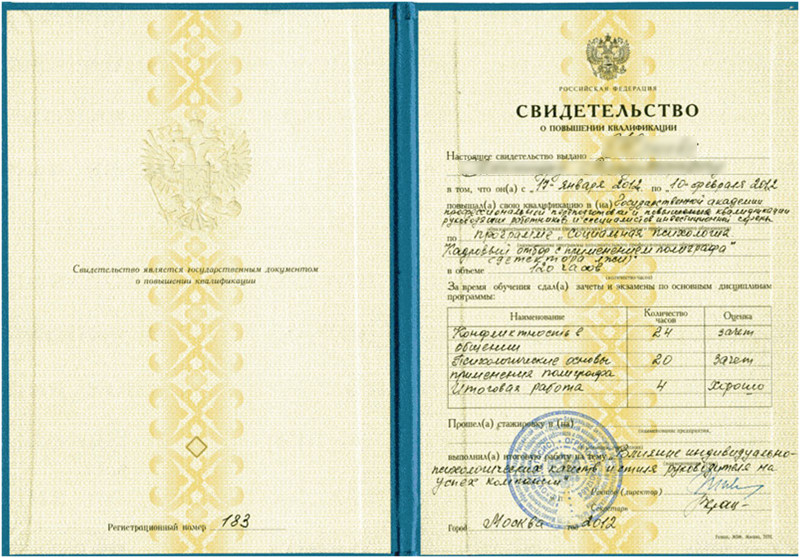 Свидетельство является государственным документом
о повышении квалификации
Регистрационный номер 183
РОССИЙСКАЯ ФЕДЕРАЦИЯ
СВИДЕТЕЛЬСТВО
О ПОВЫШЕНИИ КВАЛИФИКАЦИИ
Настоящее свидетельство выдано
в том, что он(а) с 17 января 2012 по 10 февраля 2012
повышал(а) свою квалификацию в (на) Государственной академии
профессиональной переподготовки и повышения квалификации
руководящих работников и специалистов инвестиционной сферы
по программе "Социальная психология
Кадровый отбор с применением полиграфа"
(детектора лжи)
в объеме 120 часов
(количество часов)
За время обучения сдал(а) зачеты и экзамены по основным дисциплинам
программы:
Наименование Количество часов Оценка
Конфликтность в 24 зачет
общении
Психологические основы 20 зачет
применения полиграфа
Итоговая работа 4 хорошо
Прошел(а) стажировку в (на)
(наименование предприятия,
выполнил(а) итоговую работу на тему "Влияние индивидуально-
психологических качеств и стиля руководителя на
успех компании"
Ректор (директор)
Секретарь
Город Москва год 2012